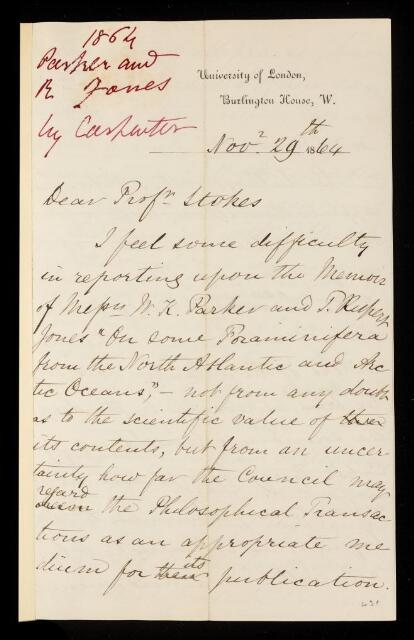 1864
Parker and
R Jones
by Carpenter
University of London,
Burlington House, W.
Novr. 29th 1864
Dear Profr. Stokes
I feel some difficulty
in reporting upon the Memoir
of Messrs W. K. Parker and T. Rupert
Jones "On some Foraminifera
from the North Atlantic and Arc
tic Oceans," – not from any doubt
as to the scientific value of
its contents, but from an uncer-
tainty how far the Council may
regard
the Philosophical Transac-
tions as an appropriate me
dium for its publication.